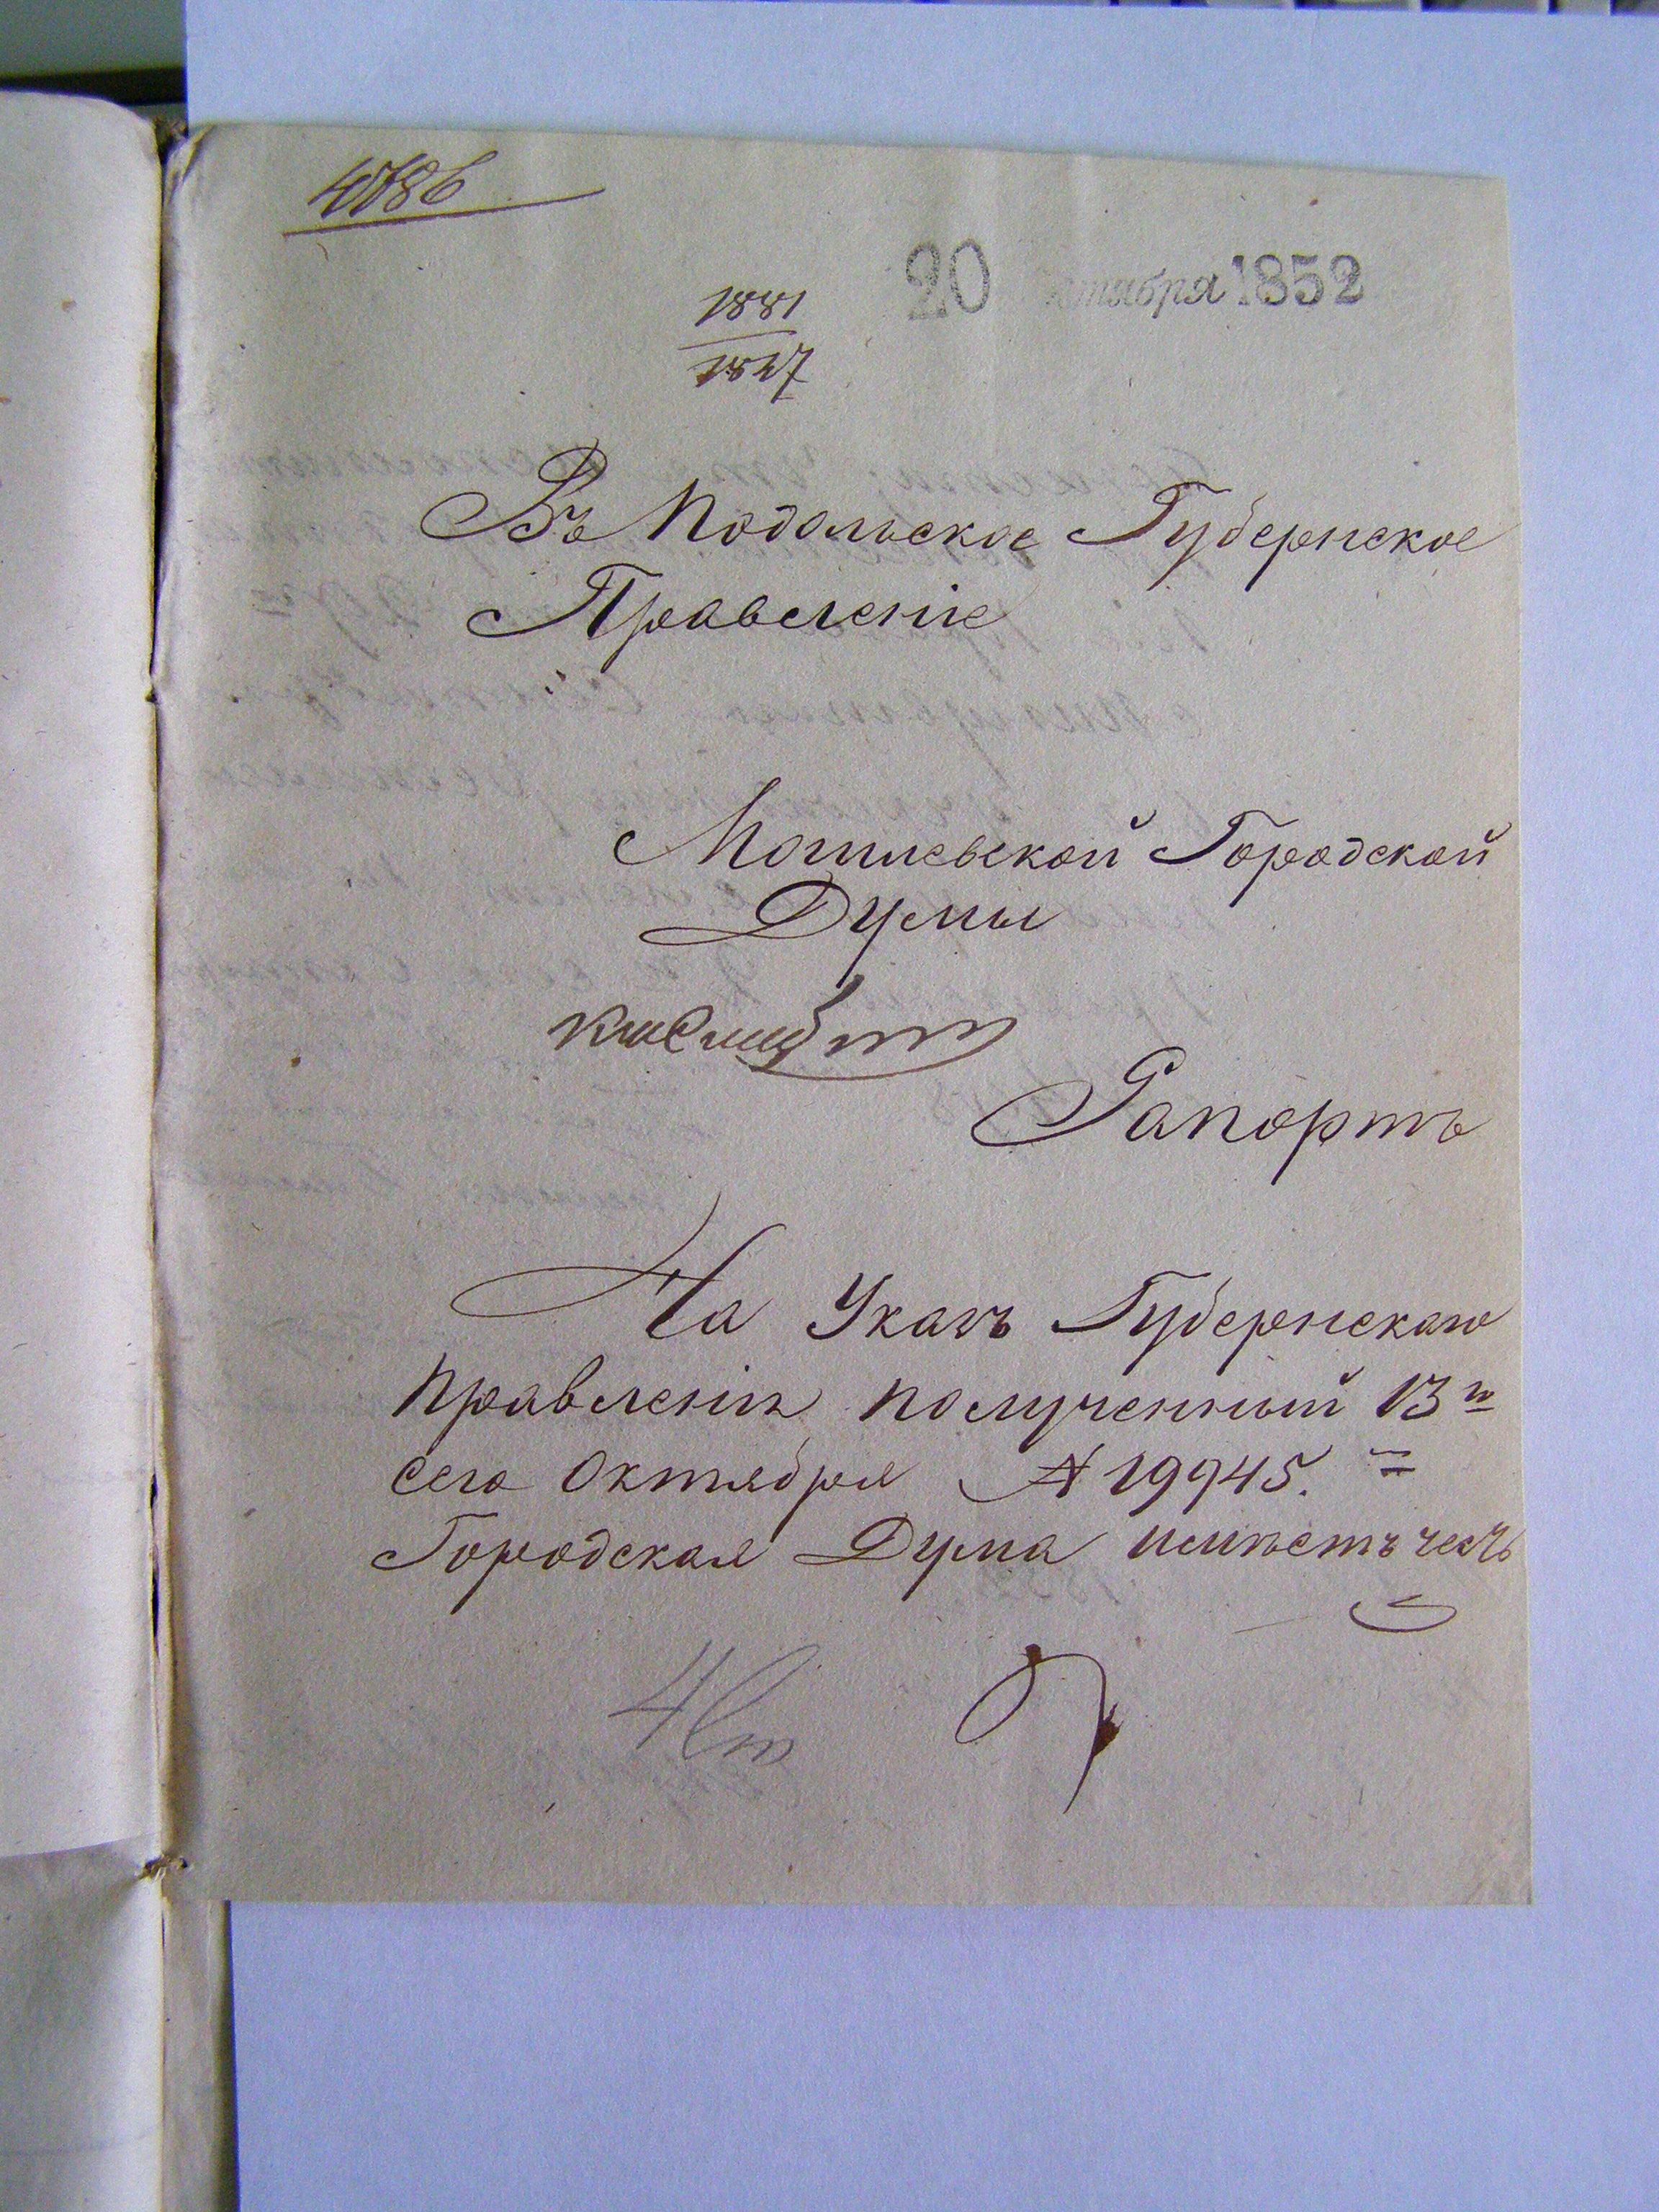 1881
1847
20 октября 1852
Въ Подольское Губернское
Правленіе
Могилевской Городской
Думы
Рапортъ
На Указъ Губернскаго
Правленія полученный 13го
сего Октября № 19945.=
Городская Дума имѣетъ честь